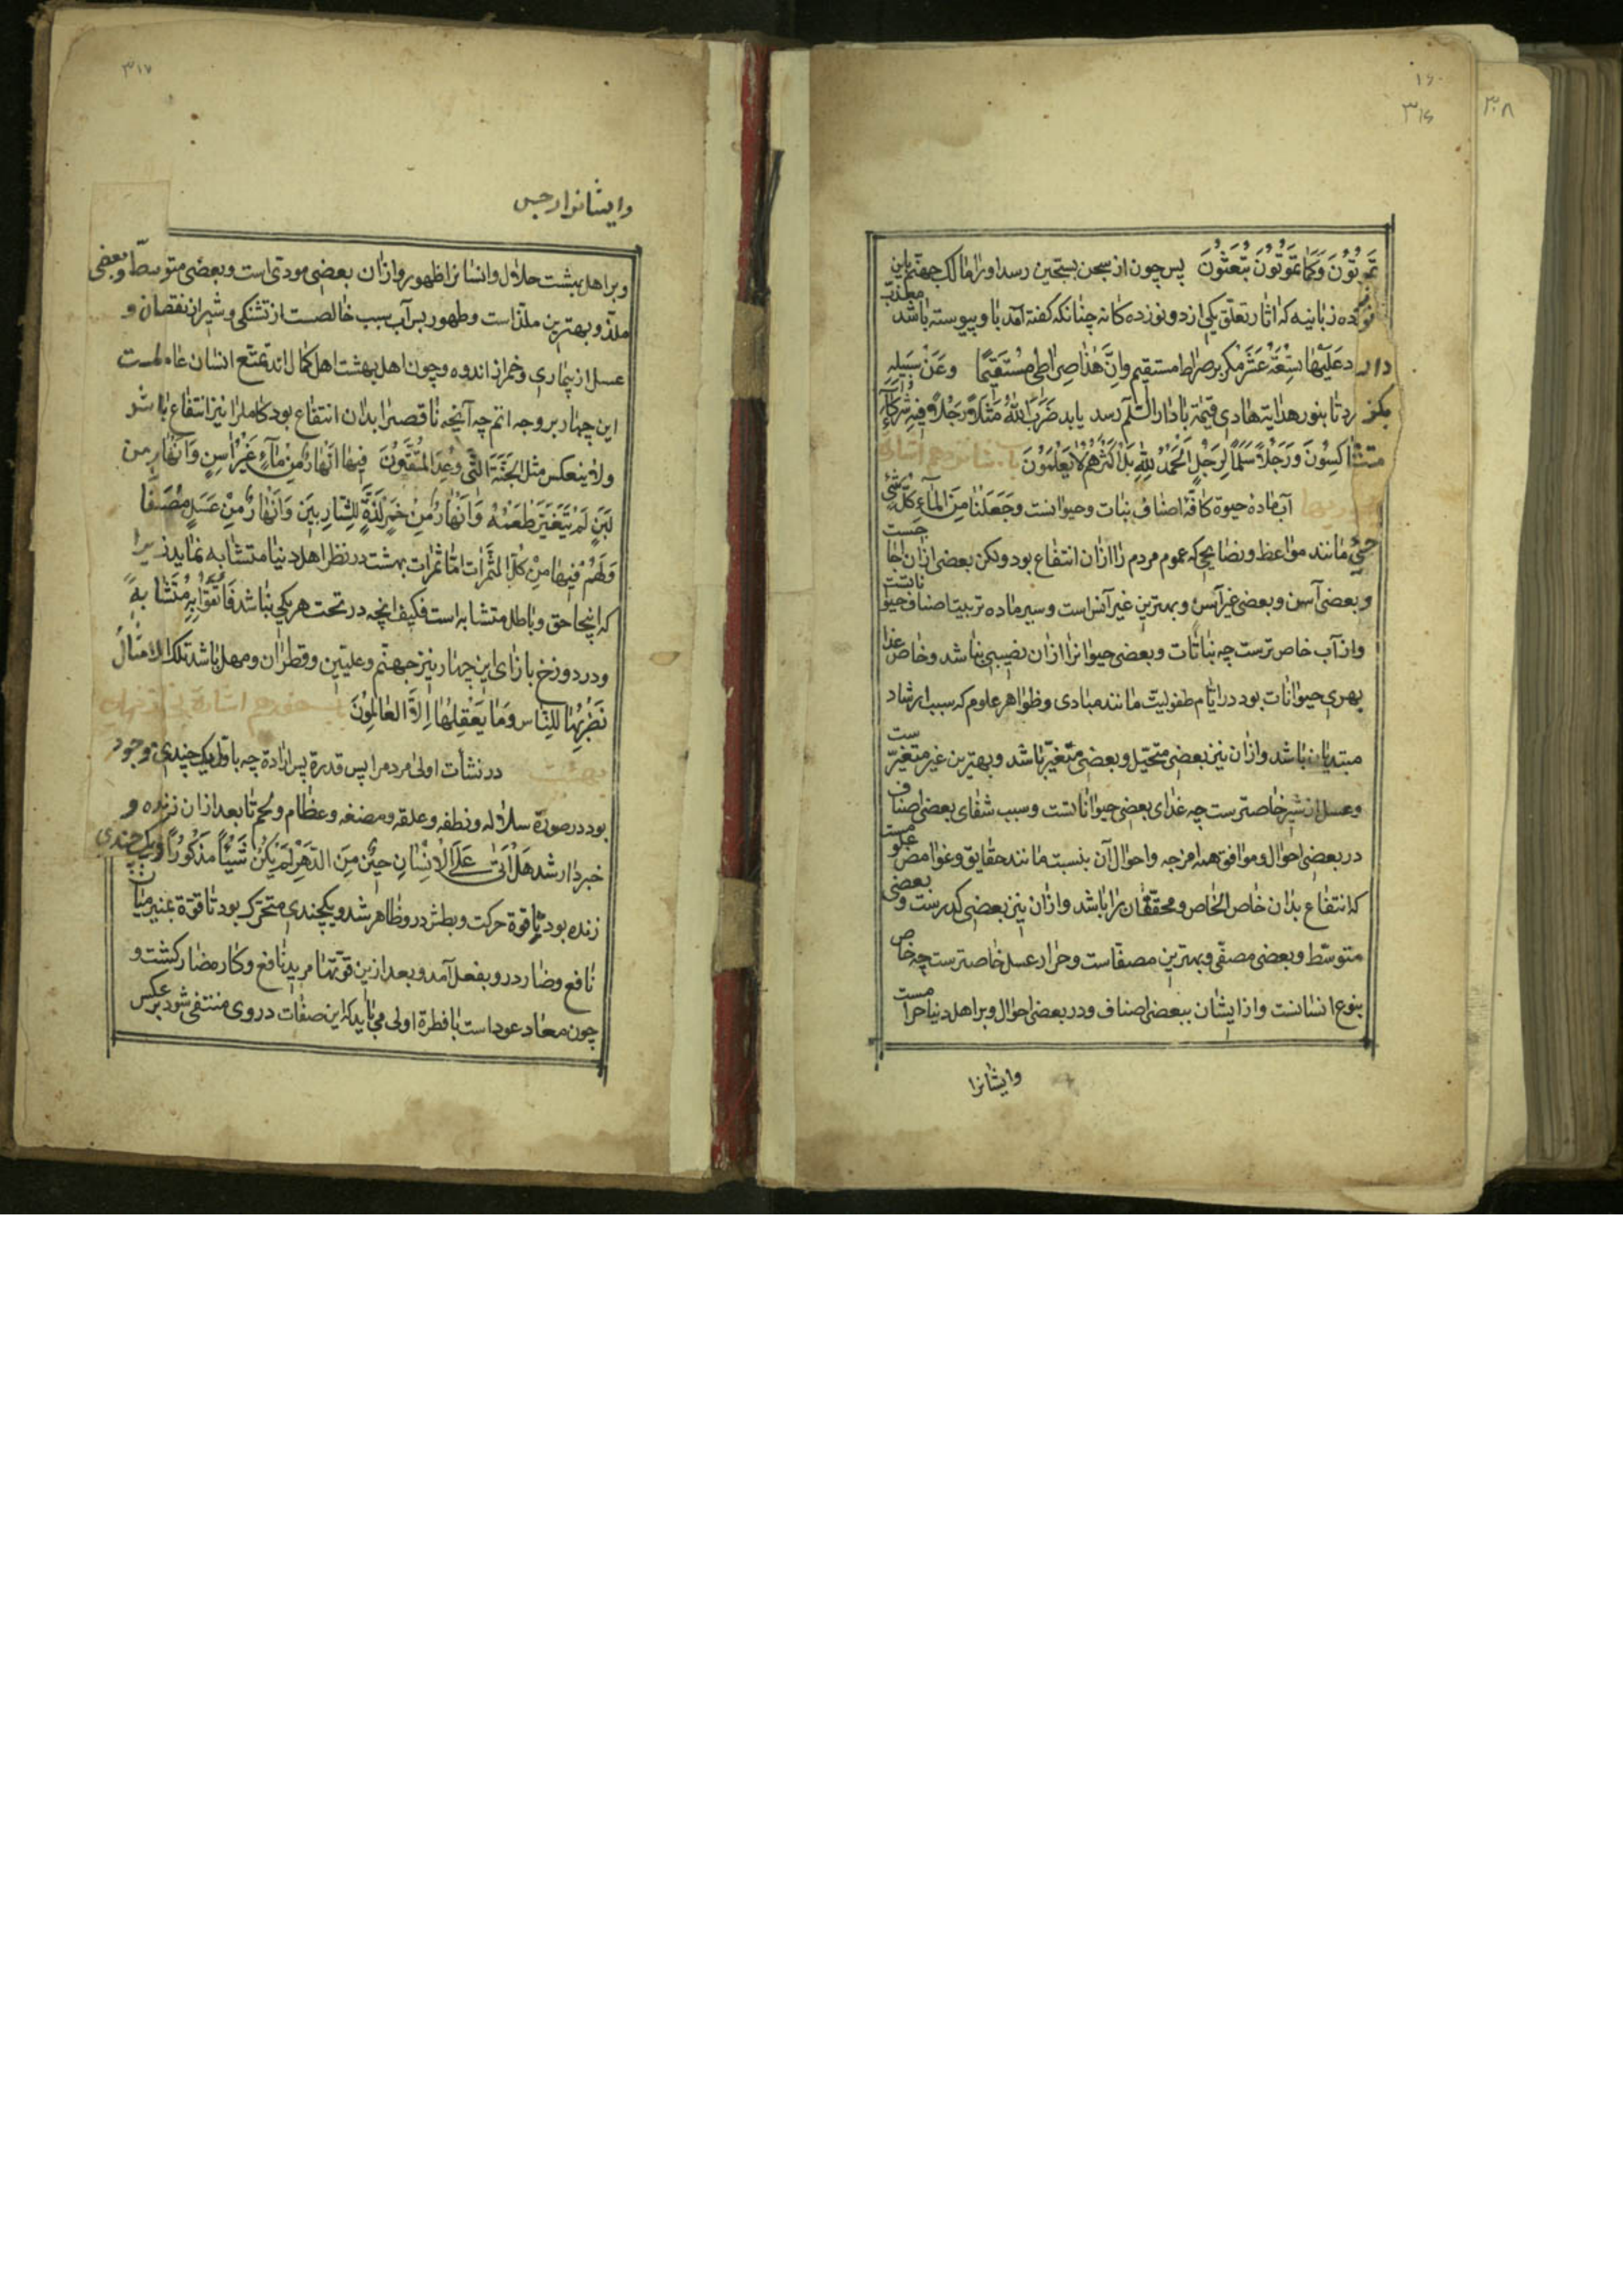 ۱۶۰
۳۱۶
۳۰۸
تَموُتوُنَ وَكَمٰا تَموُتوُنَ تُبْعَثوُنَ پس چون از سجن بسجین رسد او را مالک جهنّم باین
نوزده زبانیه که اثار تعلّق یکی از دو نوزده کانه چنانکه کفته آمد با او پیوسته باشد معذّب
دارد عَلَيْهٰا تِسْعَةَ عَشَرَ مکر بر صراط مستقیم وَاِنَّ هٰذٰا صِرٰاطى مُسْتَقيمًا وَعَنْ سَبيلِهِ
بکذرد تا بنور هدایتهادی قیٰمة بادار السّلٰم رسد یابد ضَرَبَ اللهُ مَثَلاً رَجُلاً فيهِ شُرَكٰآءُ
مُتَشٰاكِسُونَ وَرَجُلاً سَلَمًا لِرَجُلٍ اَلْحَمْدُ لِلّٰهِ بَلْ اَكْثَرُهُمْ لاٰيَعْلَمُونَ
آب ماده حیوة کافّه اصناف نبات و حیوانست وَجَعَلْنٰا مِنَ الْمٰآءِ كُلَّ شَىْءٍ
حَىٍّ مانند مواعظ و نصایحی که عموم مردم را ازان انتفاع بود ولکن بعضی ازان اجا جست
و بعضی آسن و بعضی غیر آسن و بهترین غیر آسن است و سیر ماده تربیت اصناف حیواناتست
و از آب خاص ترست چه نباتات و بعضی حیوانرا ازان نصیبی نباشد و خاص غذا
بهری حیوانات بود در ایّام طفولیّت مانند مبادی و ظواهر علوم که سبب ارشاد
مبتدیان باشد و ازان نیز بعضی متحیّل و بعضی متغیّر باشد و بهترین غیر متغیّر ست
و عسل از شیر خاصترست چه غذای بعضی حیواناتست و سبب شفای بعضی اصناف
در بعضی احوال و موافق همه امزجه و احوال آن نیست مانند حقایق و غوامض علو مست
که انتفاع بدان خاص الخاص و محقّقان را باشد و ازان نیز بعضی کدرست و بعضی
متوسّط و بعضی مصفّی و بهترین مصفّاست و خمر از عسل خاصترست چه خاص
بنوع انسانست و از ایشان ببعضی اصناف و در بعضی احوال و بر اهل دنیا حرا مست
وایشانرا
۳۱۷
وایشانرا رجس
و بر اهل بهشت حلال و انسانرا ظهور و ازان بعضی موذی است و بعضی متوسّط و بعضی
ملذّ و بهترین ملذّ است و طهور پس آب سبب خالصست از تشنکی و شیر از نقصان و
عسل از بیماری و خمر از اندوه و چون اهل بهشت اهل کمال اند تمتّع انسان عا مست
این چهار بر وجه اتم چه آنچه ناقصرا بدان انتفاع بود کاملرا نیز انتفاع باشد
ولا ینعکس مَثَلُ الْجَنَّةِ الَّتى وُعِدَ الْمُتَّقُونَ فيهٰا اَنْهٰارٌ مِنْ مٰآءٍ غَيْرِ اٰسِنٍ وَاَنْهٰارٌ مِنْ
لَبَنٍ لَمْ يَتَغَيَّرْ طَعْمُهُ وَاَنْهٰارٌ مِنْ خَمْرٍ لَذَّةٍ لِلشّٰارِبينَ وَاَنْهٰارٌ مِنْ عَسَلٍ مُصَفًّا
وَلَهُمْ فيهٰا مِنْ كُلِّ الثَّمَرٰاتِ امّا ثمرات بهشت در نظر اهل دنیا متشابه نماید زیرا
که اینجا حق و باطل متشابه است فکیف انچه در تحت هر یکی باشد فَاُتُوا بِهِ مُتَشٰابِهًا
و در دوزخ بازای این چهار نیز جهنّم و غلیین و قطران و مهل باشد تِلْكَ الْاَمْثٰالُ
نَضْرِبُهٰا لِلنّٰاسِ وَمٰا يَعْقِلُهٰا اِلاَّ الْعٰالِمُونَ
بهشت در نشأت اولی مردم را پس قدرة پس ارادة چه باوّل یک چندی موجود
بود در صورة سلاله و نطفه و علقه و مضغه و عظام و لحم تا بعد ازان زنده و
خبردار شد هَلْ اَتىٰ عَلَى الْاِنْسٰانِ حينٌ مِنَ الدَّهْرِ لَمْ يَكُنْ شَيْئًا مَذْكُورًا و یک چندی
زنده بود تا قوة حرکت و بطش درو ظاهر شد و یکچندی متحرّک بود تا قوّة تمییز میان
نافع و ضار درو بفعل آمد و بعد ازین قوّتها مرید نافع و کاره ضار کشت و
چون معاد عود است با فطرة اولی می باید که این صفات در وی منتفی شود بر عکس